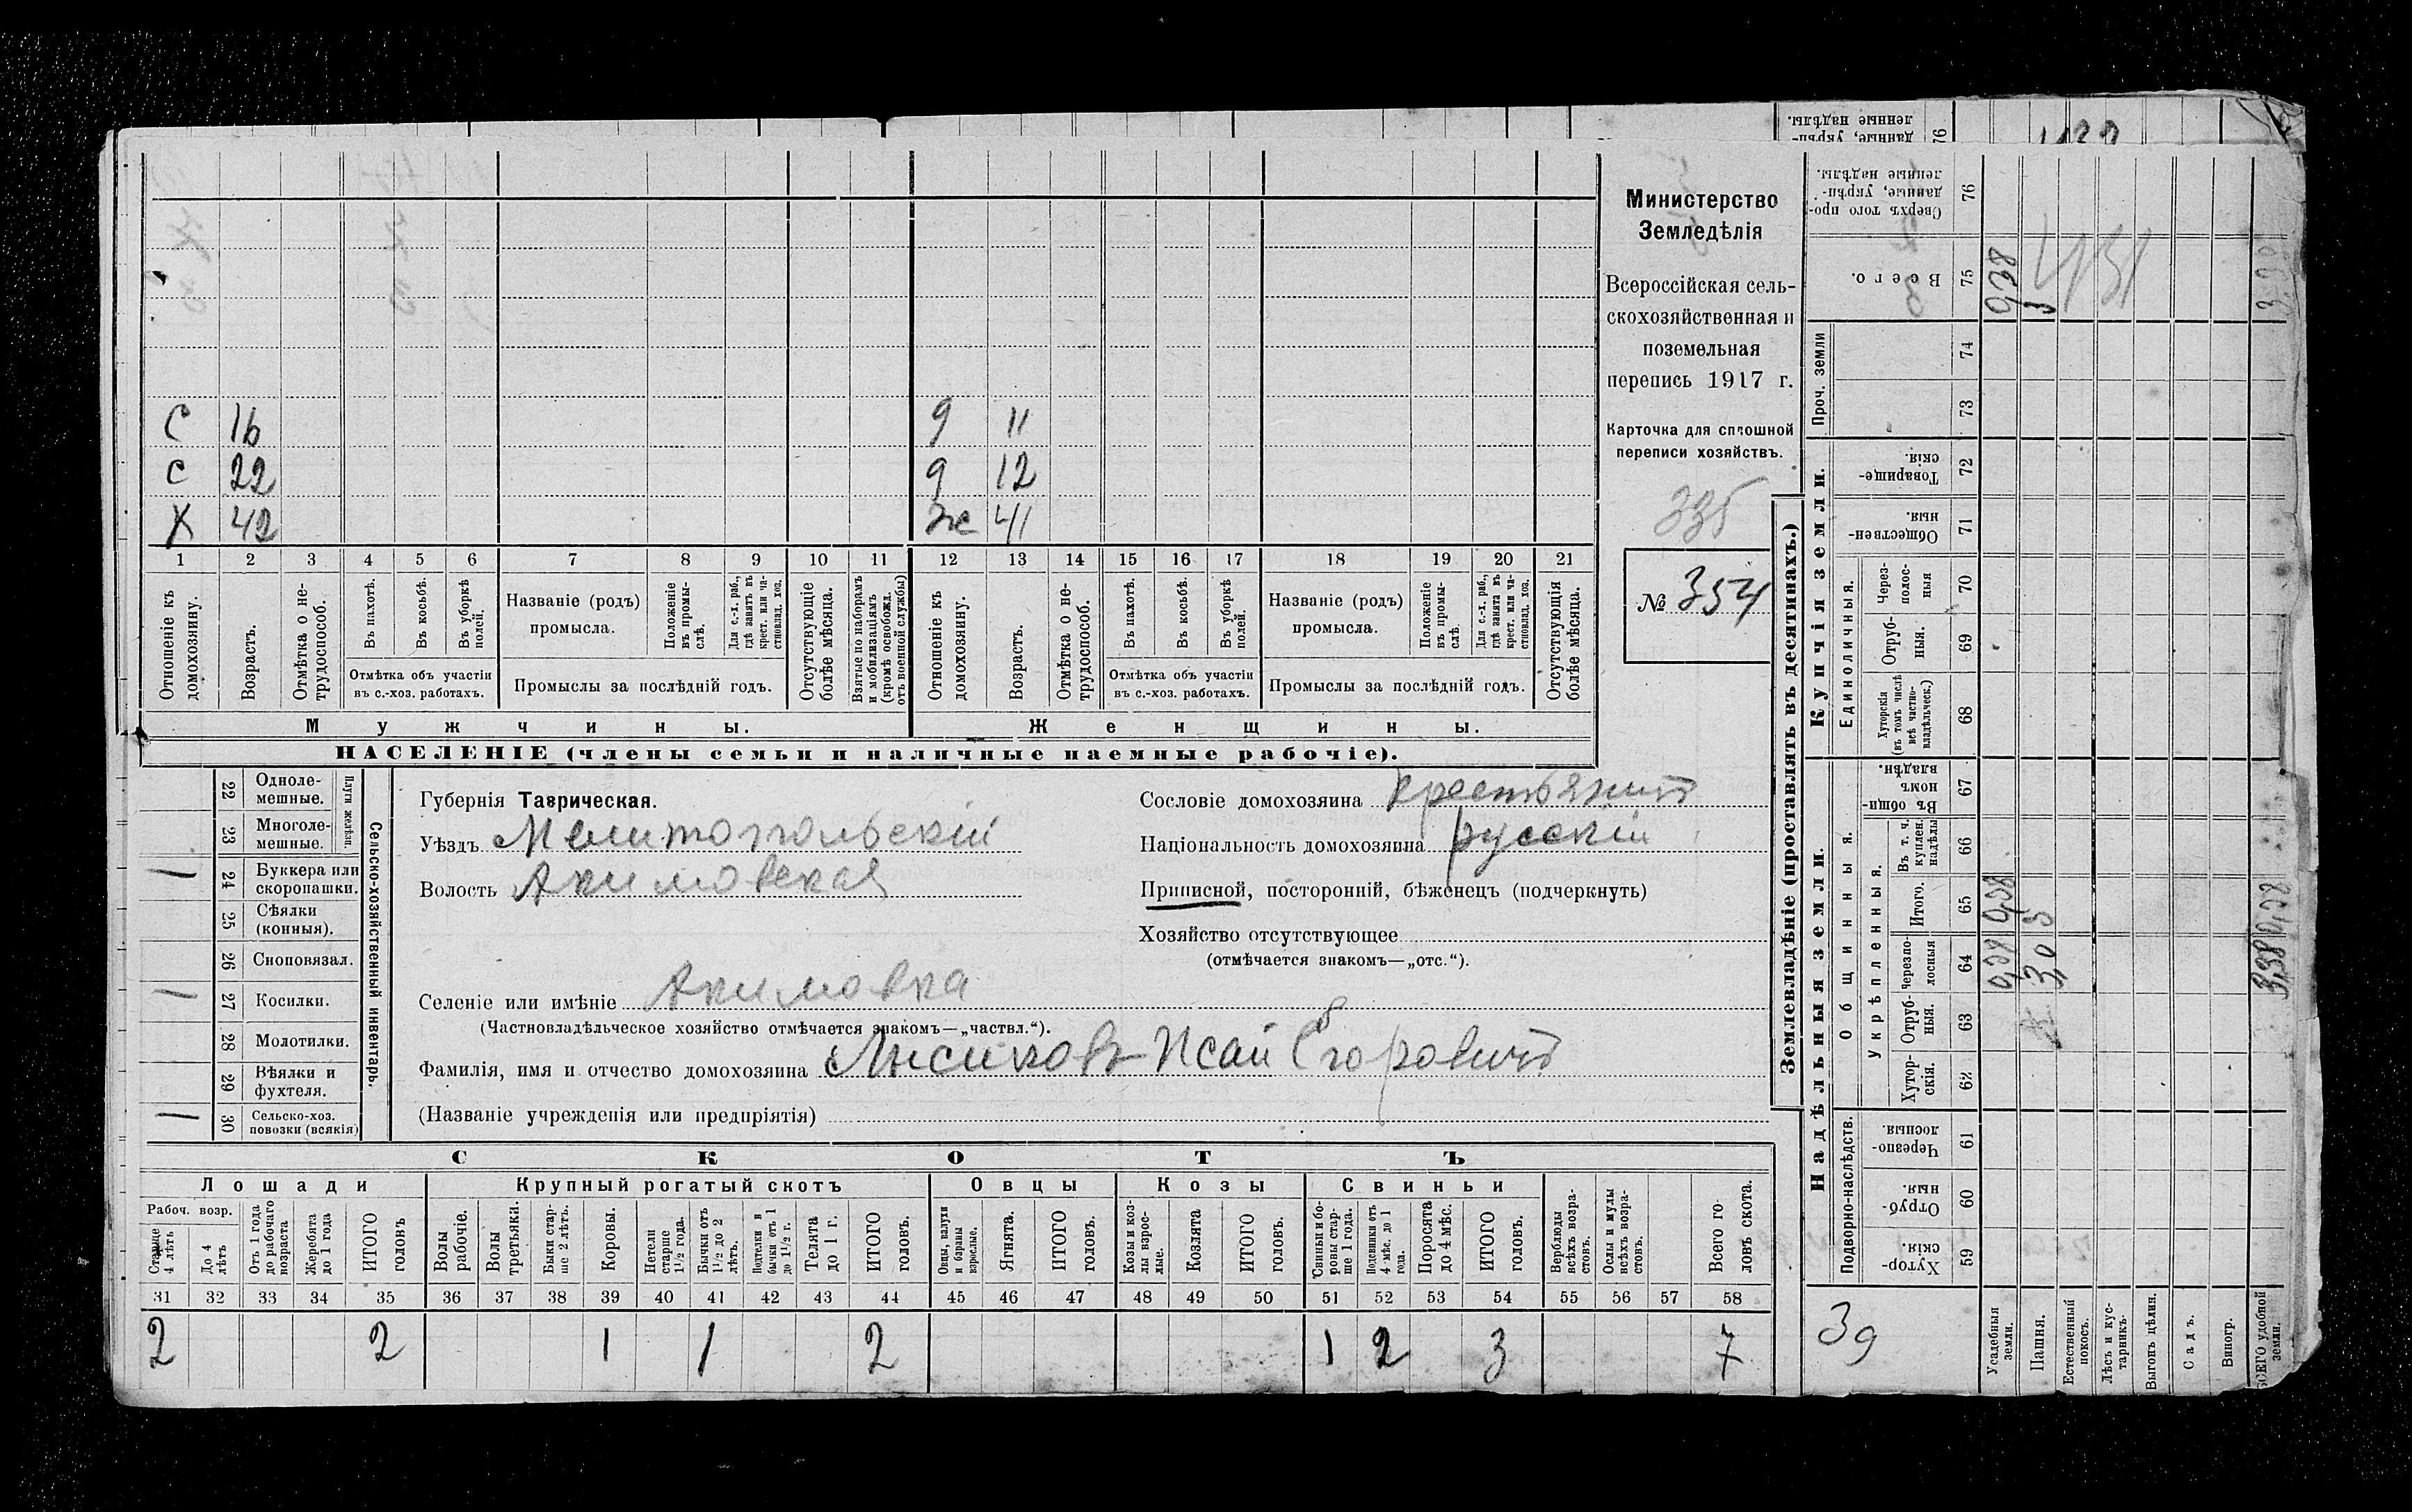 ленные надѣлы.
данные, укрѣп-
76
Министерство
Земледѣлія
Всероссійская сель-
скохозяйственная и
поземельная
перепись 1917 г.
Карточка для сплошной
переписи хозяйствъ.
335
№ 354
С 16 9 11
С 22 9 12
Х 42 Же 41
1 2 3 4 5 6 7 8 9 10 11 12 13 14 15 16 17 18 19 20 21
Отношеніе къ домохозяину.
Возрастъ.
Отмѣтка о не-трудоспособ.
Въ пахотѣ.
Въ косьбѣ.
Въ уборкѣ полей.
Отмѣтка объ участіи въ с.-хоз. работахъ.
Названіе (родъ) промысла.
Положеніе въ промы-слѣ.
Для с.-х. раб., гдѣ занятъ въ крест. или ча-стновлад. хоз.
Промыслы за послѣдній годъ.
Отсутствующіе болѣе мѣсяца.
Взятые по наборамъ и мобилизаціямъ (кромѣ освобожд. отъ военной службы)
Отношеніе къ домохозяину.
Возрастъ.
Отмѣтка о не-трудоспособ.
Въ пахотѣ.
Въ косьбѣ.
Въ уборкѣ полей.
Отмѣтка объ участіи въ с.-хоз. работахъ.
Названіе (родъ) промысла.
Положеніе въ промы-слѣ.
Для с.-х. раб., гдѣ занята въ крест. или ча-стновлад. хоз.
Промыслы за послѣдній годъ.
Отсутствующія болѣе мѣсяца.
Мужчины.
Женщины.
НАСЕЛЕНІЕ (члены семьи и наличные наемные рабочіе).
22 Одноле-мешные.
23 Многоле-мешные.
Плуги желѣзн.
1 24 Буккера или скоропашки.
25 Сѣялки (конныя).
26 Сноповязал.
1 27 Косилки.
28 Молотилки.
29 Вѣялки и фухтеля.
1 30 Сельско-хоз. повозки (всякія)
Сельско-хозяйственный инвентарь.
Губернія Таврическая.
Уѣздъ Мелитопольскій
Волость Акимовская
Сословіе домохозяина крестьянинъ
Національность домохозяина русскій
Приписной, посторонній, бѣженецъ (подчеркнуть)
Хозяйство отсутствующее
(отмѣчается знакомъ—„отс.“).
Селеніе или имѣніе Акимовка
(Частновладѣльческое хозяйство отмѣчается знакомъ—„частвл.“).
Фамилія, имя и отчество домохозяина Лысиковъ Исай Егоровичъ
(Названіе учрежденія или предпріятія)
СКОТЪ
Лошади
Крупный рогатый скотъ
Овцы
Козы
Свиньи
Рабоч. возр.
Старше 4 лѣтъ
До 4 лѣтъ
Отъ 1 года до рабочаго возраста
Жеребята до 1 года
ИТОГО головъ
Волы рабочіе.
Волы третьяки.
Быки стар-ше 2 лѣтъ.
Коровы.
Нетели старше 1½ года.
Бычки отъ 1½ до 2 лѣтъ.
Подтелки и бычки отъ 1 до 1½ г.
Телята до 1 г.
ИТОГО головъ.
Овцы, валухи и бараны взрослые.
Ягнята.
ИТОГО головъ.
Козы и коз-лы взрос-лые.
Козлята
ИТОГО головъ.
Свиньи и бо-ровы стар-ше 1 года.
Подсвинки отъ 4 мѣс. до 1 года.
Поросята до 4 мѣс.
ИТОГО головъ.
Верблюды всѣхъ возра-стовъ.
Ослы и мулы всѣхъ возра-стовъ.
Всего го-ловъ скота.
31 32 33 34 35 36 37 38 39 40 41 42 43 44 45 46 47 48 49 50 51 52 53 54 55 56 57 58
2 2 1 1 2 1 2 3 7
Землевладѣніе (проставлять въ десятинахъ.)
Купчія земли.
Надѣльныя земли.
Сверхъ того про-данные, укрѣп-ленные надѣлы. 76
Всего. 75
Проч. земли
74
73
Товарище-скія. 72
Обществен-ныя. 71
Единоличныя.
Через-полос-ныя 70
Отруб-ныя. 69
Хуторскія (въ томъ числѣ всѣ частно-владѣльческ.) 68
Общинныя.
Въ общин-номъ владѣн. 67
Укрѣпленныя.
Въ т. ч. куплен. надѣлы 66
Итого. 65
черезпо-лосныя 64
Отруб-ныя. 63
Хутор-скія. 62
Подворно-наслѣдств.
Черезпо-лосныя 61
Отруб-ныя. 60
Хутор-скія. 59
39
Усадебныя земли.
Пашня.
Естественный покосъ.
Лѣсъ и кус-тарникъ.
Выгонъ цѣлин.
Садъ.
Виногр.
ВСЕГО удобной земли.